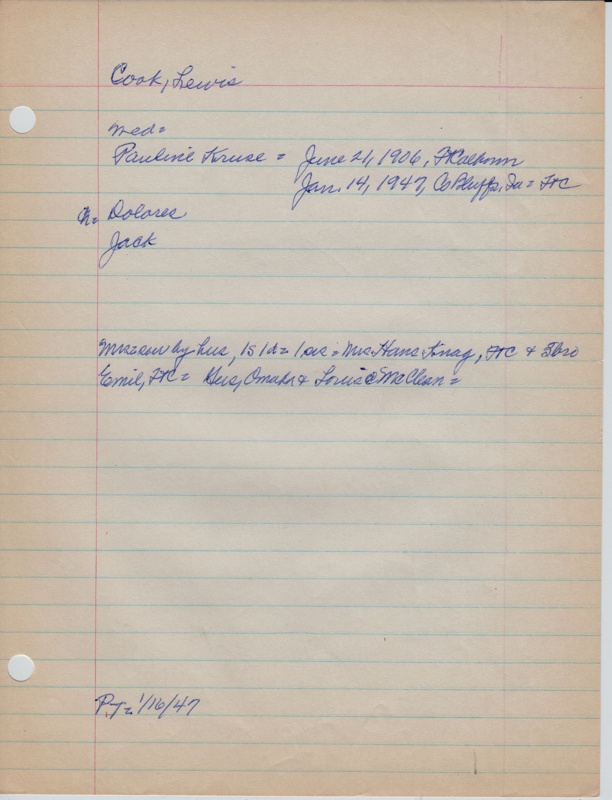 Cook, Lewis
Med=
Pauline Kruse = June 21, 1906, FtCalhoun
Jan. 14, 1947, Co Bluffs, Ia = FtC
Ch= Dolores
Jack
by hus, 1s 1d= 1sis = Mrs Hans Knag, FtC & 3bro
Emil, FtC = Gus, Omaha & Louis @ McClean =
P.T= 1/16/47